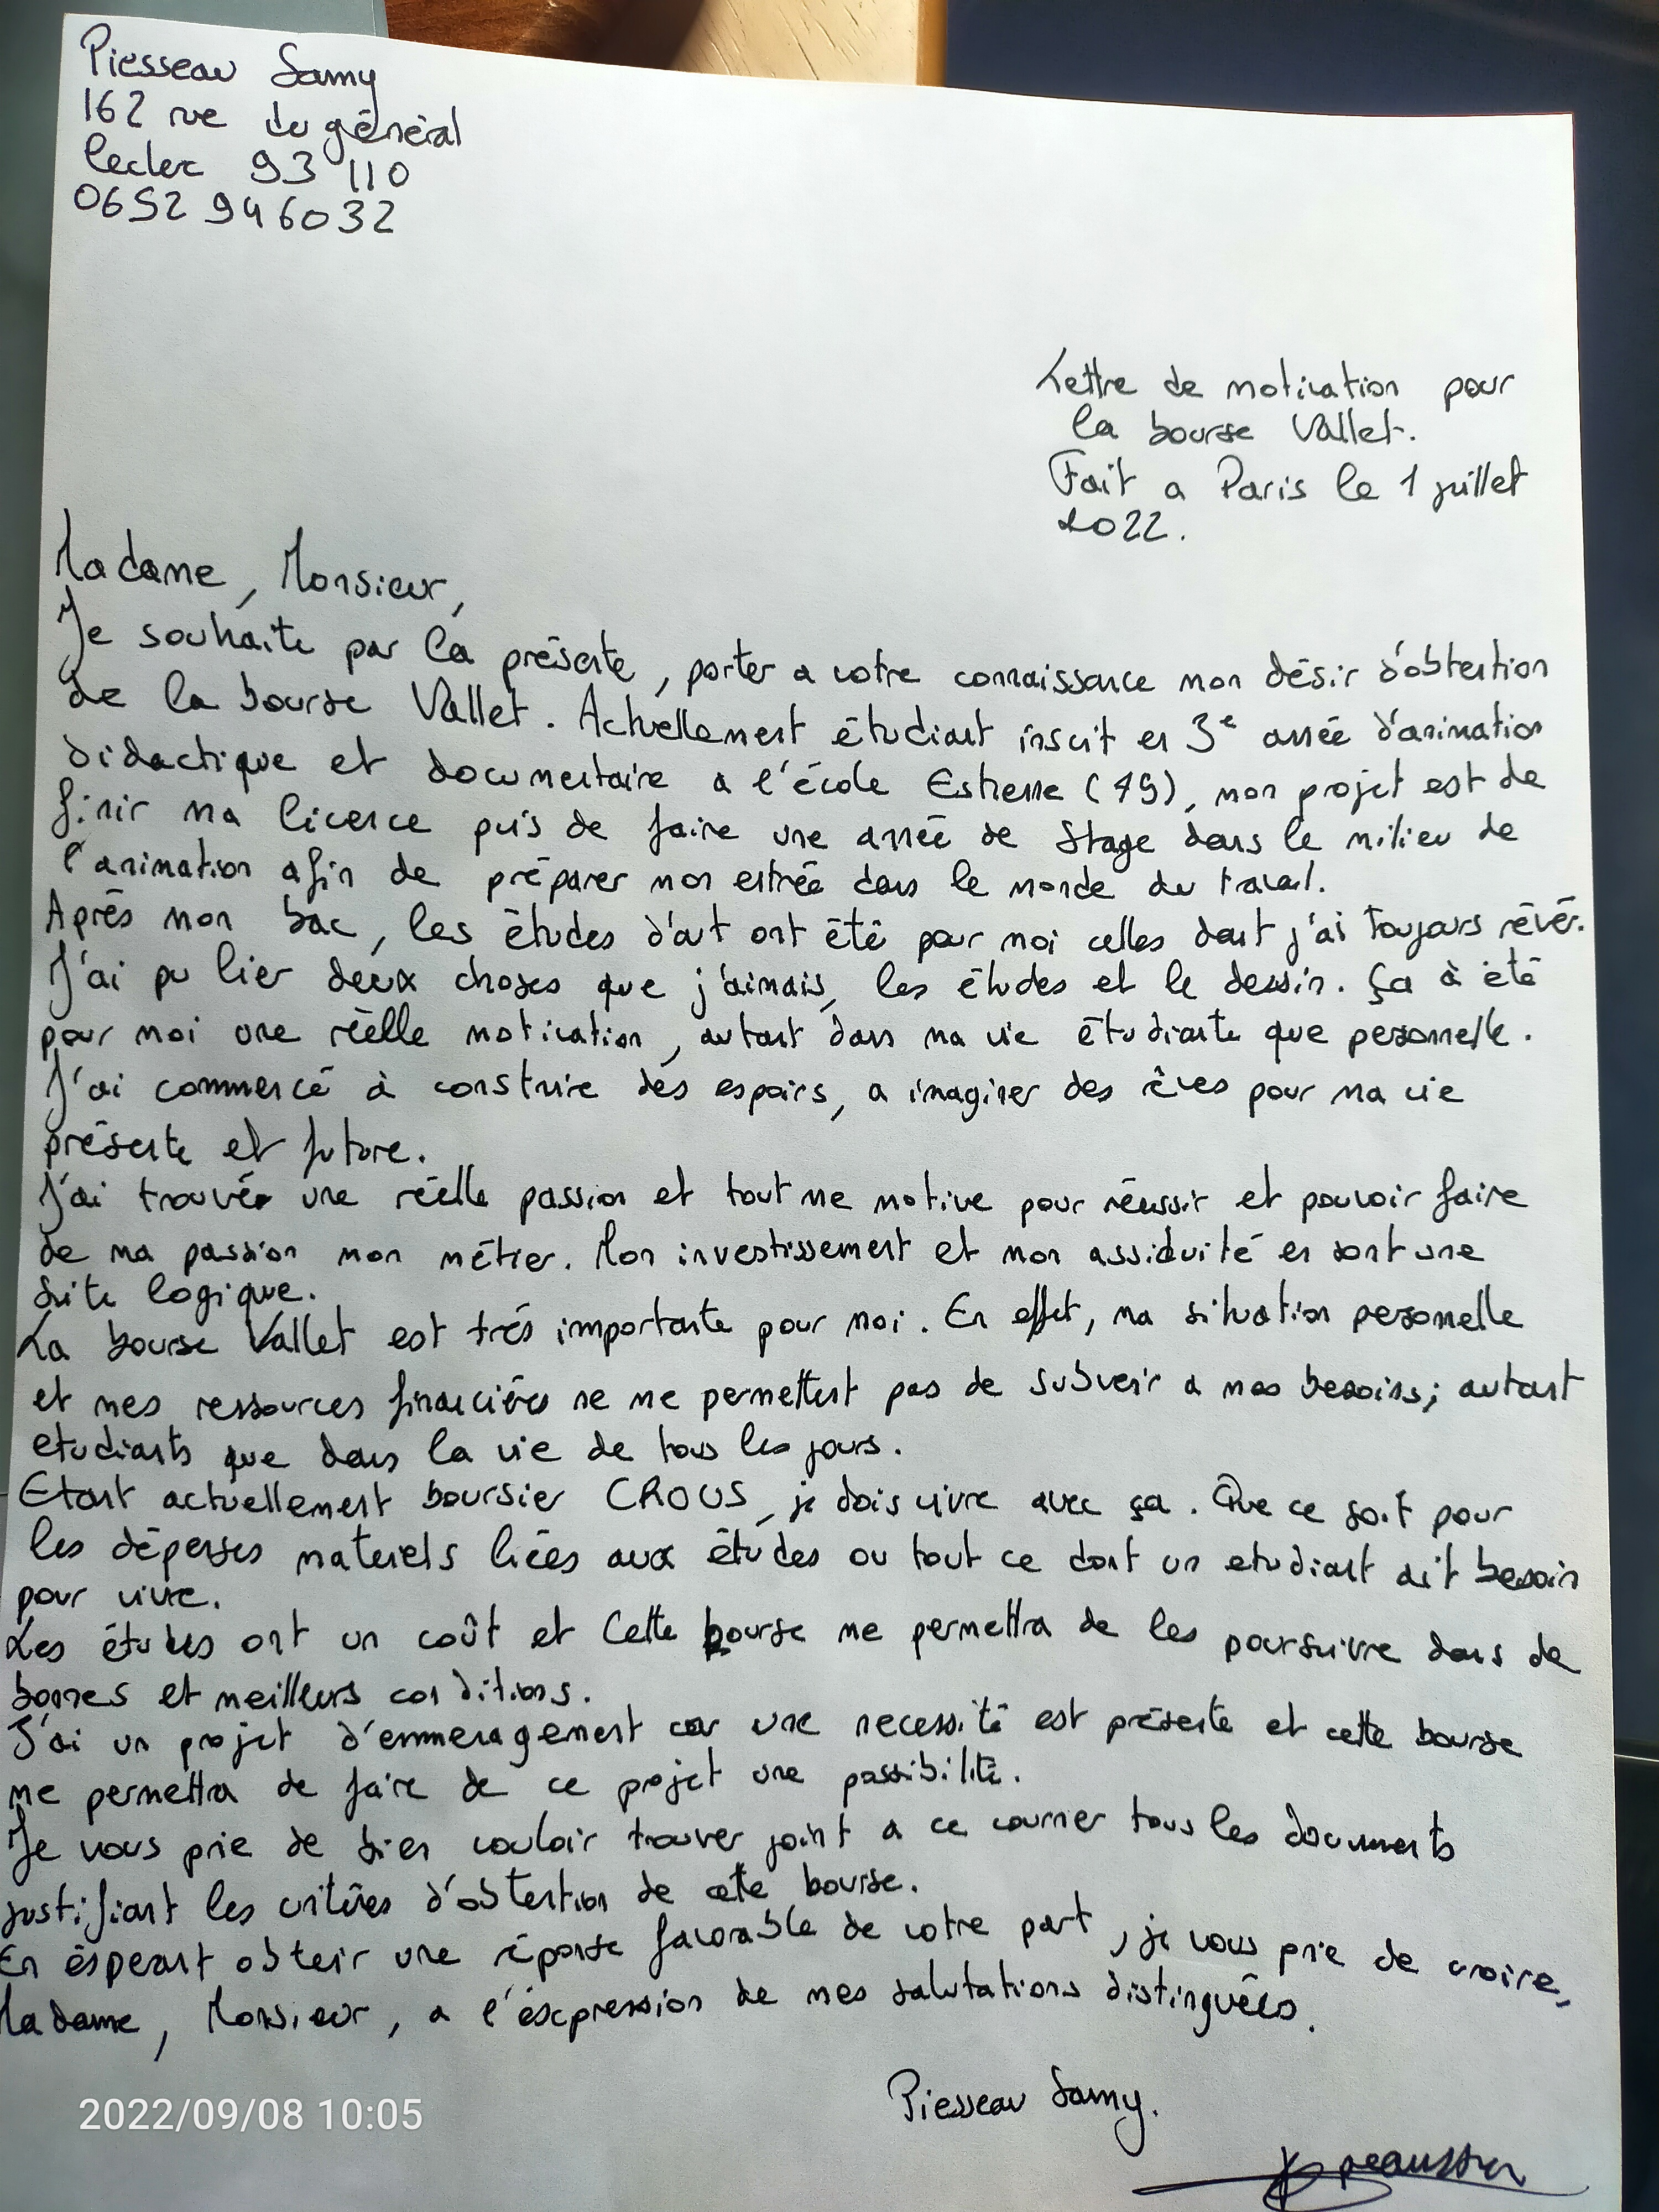 Piesseau Samy
162 rue du général
leclerc 93 110
0652 946032
Lettre de motivation pour
la bourse Vallet.
Fait a Paris le 1 juillet
2022.
Madame, Monsieur,
Je souhaite par la présente, porter a votre connaissance mon désir d'obtention
de la bourse Vallet. Actuellement étudiant inscrit en 3e année d'animation
didactique et documentaire a l'école Estienne (75), mon projet est de
finir ma licence puis de faire une année de stage dans le milieu de
l'animation afin de préparer mon entrée dans le monde du travail.
Après mon bac, les études d'art ont été pour moi celles dont j'ai toujours rêvé.
J'ai pu lier deux choses que j'aimais, les études et le dessin. Ça à été
pour moi une réelle motivation, autant dans ma vie étudiante que personnelle.
J'ai commencé à construire des espoirs, a imaginer des rêves pour ma vie
présente et future.
J'ai trouvé une réelle passion et tout me motive pour réussir et pouvoir faire
de ma passion mon métier. Mon investissement et mon assiduité en sont une
suite logique.
La bourse Vallet est très importante pour moi. En effet, ma situation personnelle
et mes ressources financières ne me permettent pas de subvenir a mes besoins; autant
etudiants que dans la vie de tous les jours.
Etant actuellement boursier CROUS, je dois vivre avec ça. Que ce soit pour
les dépenses materiels liées aux études ou tout ce dont un etudiant ait besoin
pour vivre.
Les études ont un coût et cette bourse me permettra de les poursuivre dans de
bonnes et meilleurs conditions.
J'ai un projet d'emmenagement car une necessité est présente et cette bourse
me permettra de faire de ce projet une possibilité.
Je vous prie de bien vouloir trouver joint a ce courrier tous les documents
justifiant les critères d'obtention de cette bourse.
En ésperant obtenir une réponse favorable de votre part, je vous prie de croire,
Madame, Monsieur, a l'éxcpression de mes salutations distinguées.
Piesseau Samy.
2022/09/08 10:05